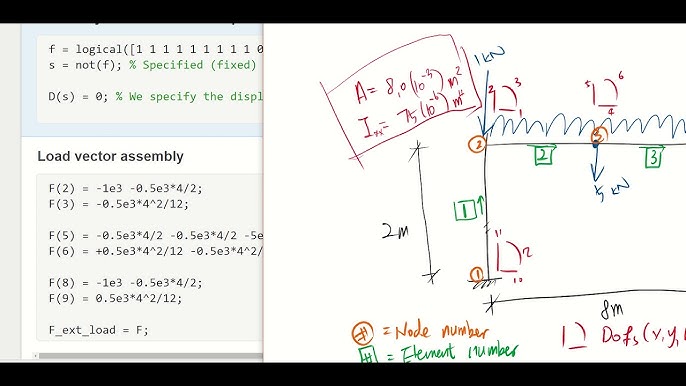 f = logical([1 1 1 1 1 1 1 1 1 0
s = not(f); % Specified (fixed)
D(s) = 0; % We specify the displ
Load vector assembly
F(2) = -1e3 -0.5e3*4/2;
F(3) = -0.5e3*4^2/12;
F(5) = -0.5e3*4/2 -0.5e3*4/2 -5e
F(6) = +0.5e3*4^2/12 -0.5e3*4^2
F(8) = -1e3 -0.5e3*4/2;
F(9) = 0.5e3*4^2/12;
F_ext_load = F;
A = 8,0(10⁻³) m²
Iₓₓ = 75(10⁻⁶) m⁴
1 kN
2 3
1
5 6
4
2 3
2 3
5 kN
1
2m
11 12
10
1
8m
# = Node number
# = Element number
Dofs (x,y,